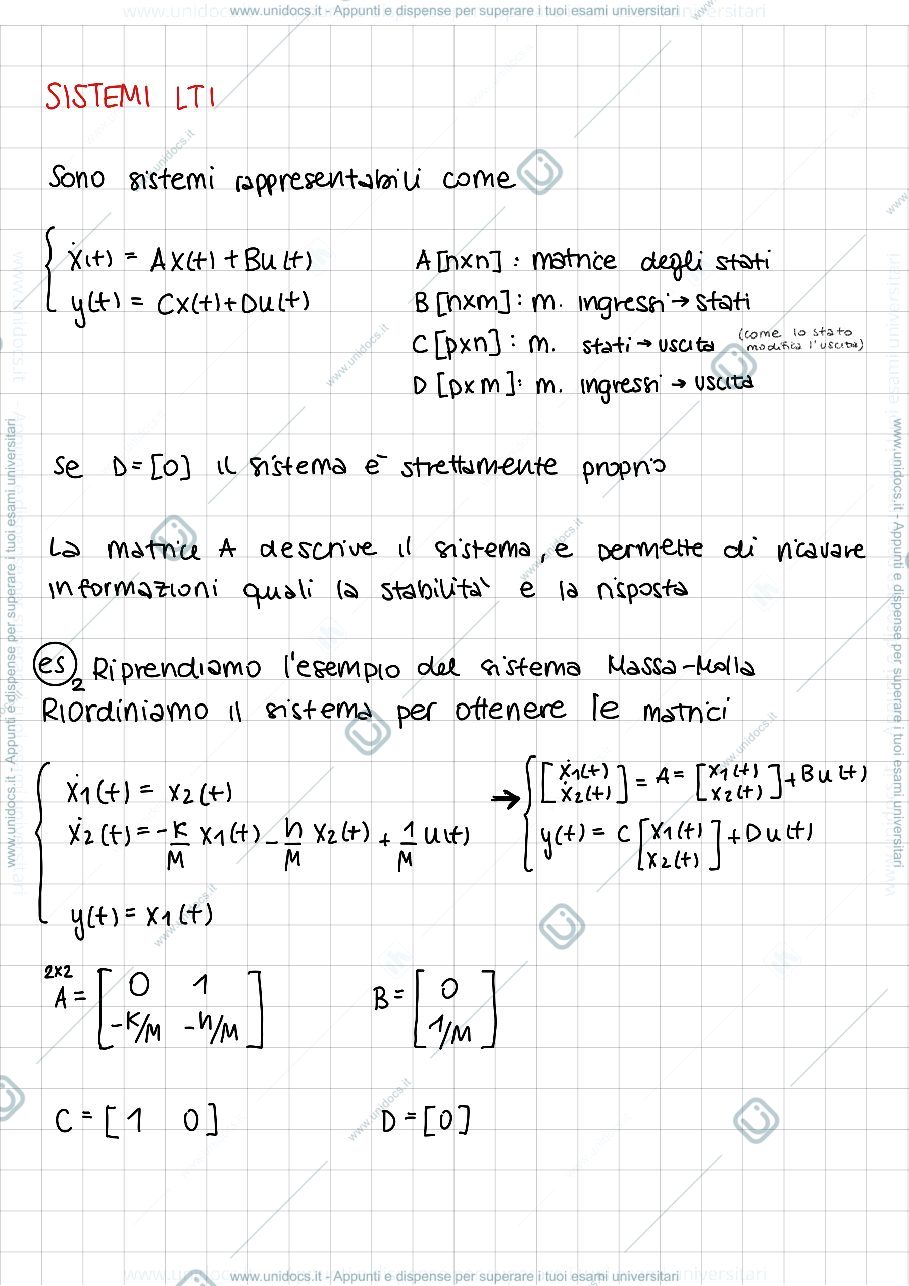 www.unidocs.it - Appunti e dispense per superare i tuoi esami universitari
SISTEMI LTI
Sono sistemi rappresentabili come
ẋ(t) = Ax(t) + Bu(t)
y(t) = Cx(t) + Du(t)
A [n×n] : matrice degli stati
B [n×m] : m. ingressi → stati
C [p×n] : m. stati → uscita (come lo stato modifica l'uscita)
D [p×m] : m. ingressi → uscita
Se D = [0] il sistema è strettamente proprio
La matrice A descrive il sistema, e permette di ricavare
informazioni quali la stabilità e la risposta
es 2 Riprendiamo l'esempio del sistema Massa-Molla
Riordiniamo il sistema per ottenere le matrici
ẋ1(t) = x2(t)
ẋ2(t) = -K/M x1(t) - h/M x2(t) + 1/M u(t)
y(t) = x1(t)
→ [ẋ1(t) ẋ2(t)] = A = [x1(t) x2(t)] + Bu(t)
y(t) = C [x1(t) x2(t)] + Du(t)
2x2
A = [0 1
-K/M -h/M]
B = [0
1/M]
C = [1 0]
D = [0]
www.unidocs.it - Appunti e dispense per superare i tuoi esami universitari
www.unidocs.it - Appunti e dispense per superare i tuoi esami universitari
www.unidocs.it - Appunti e dispense per superare i tuoi esami universitari